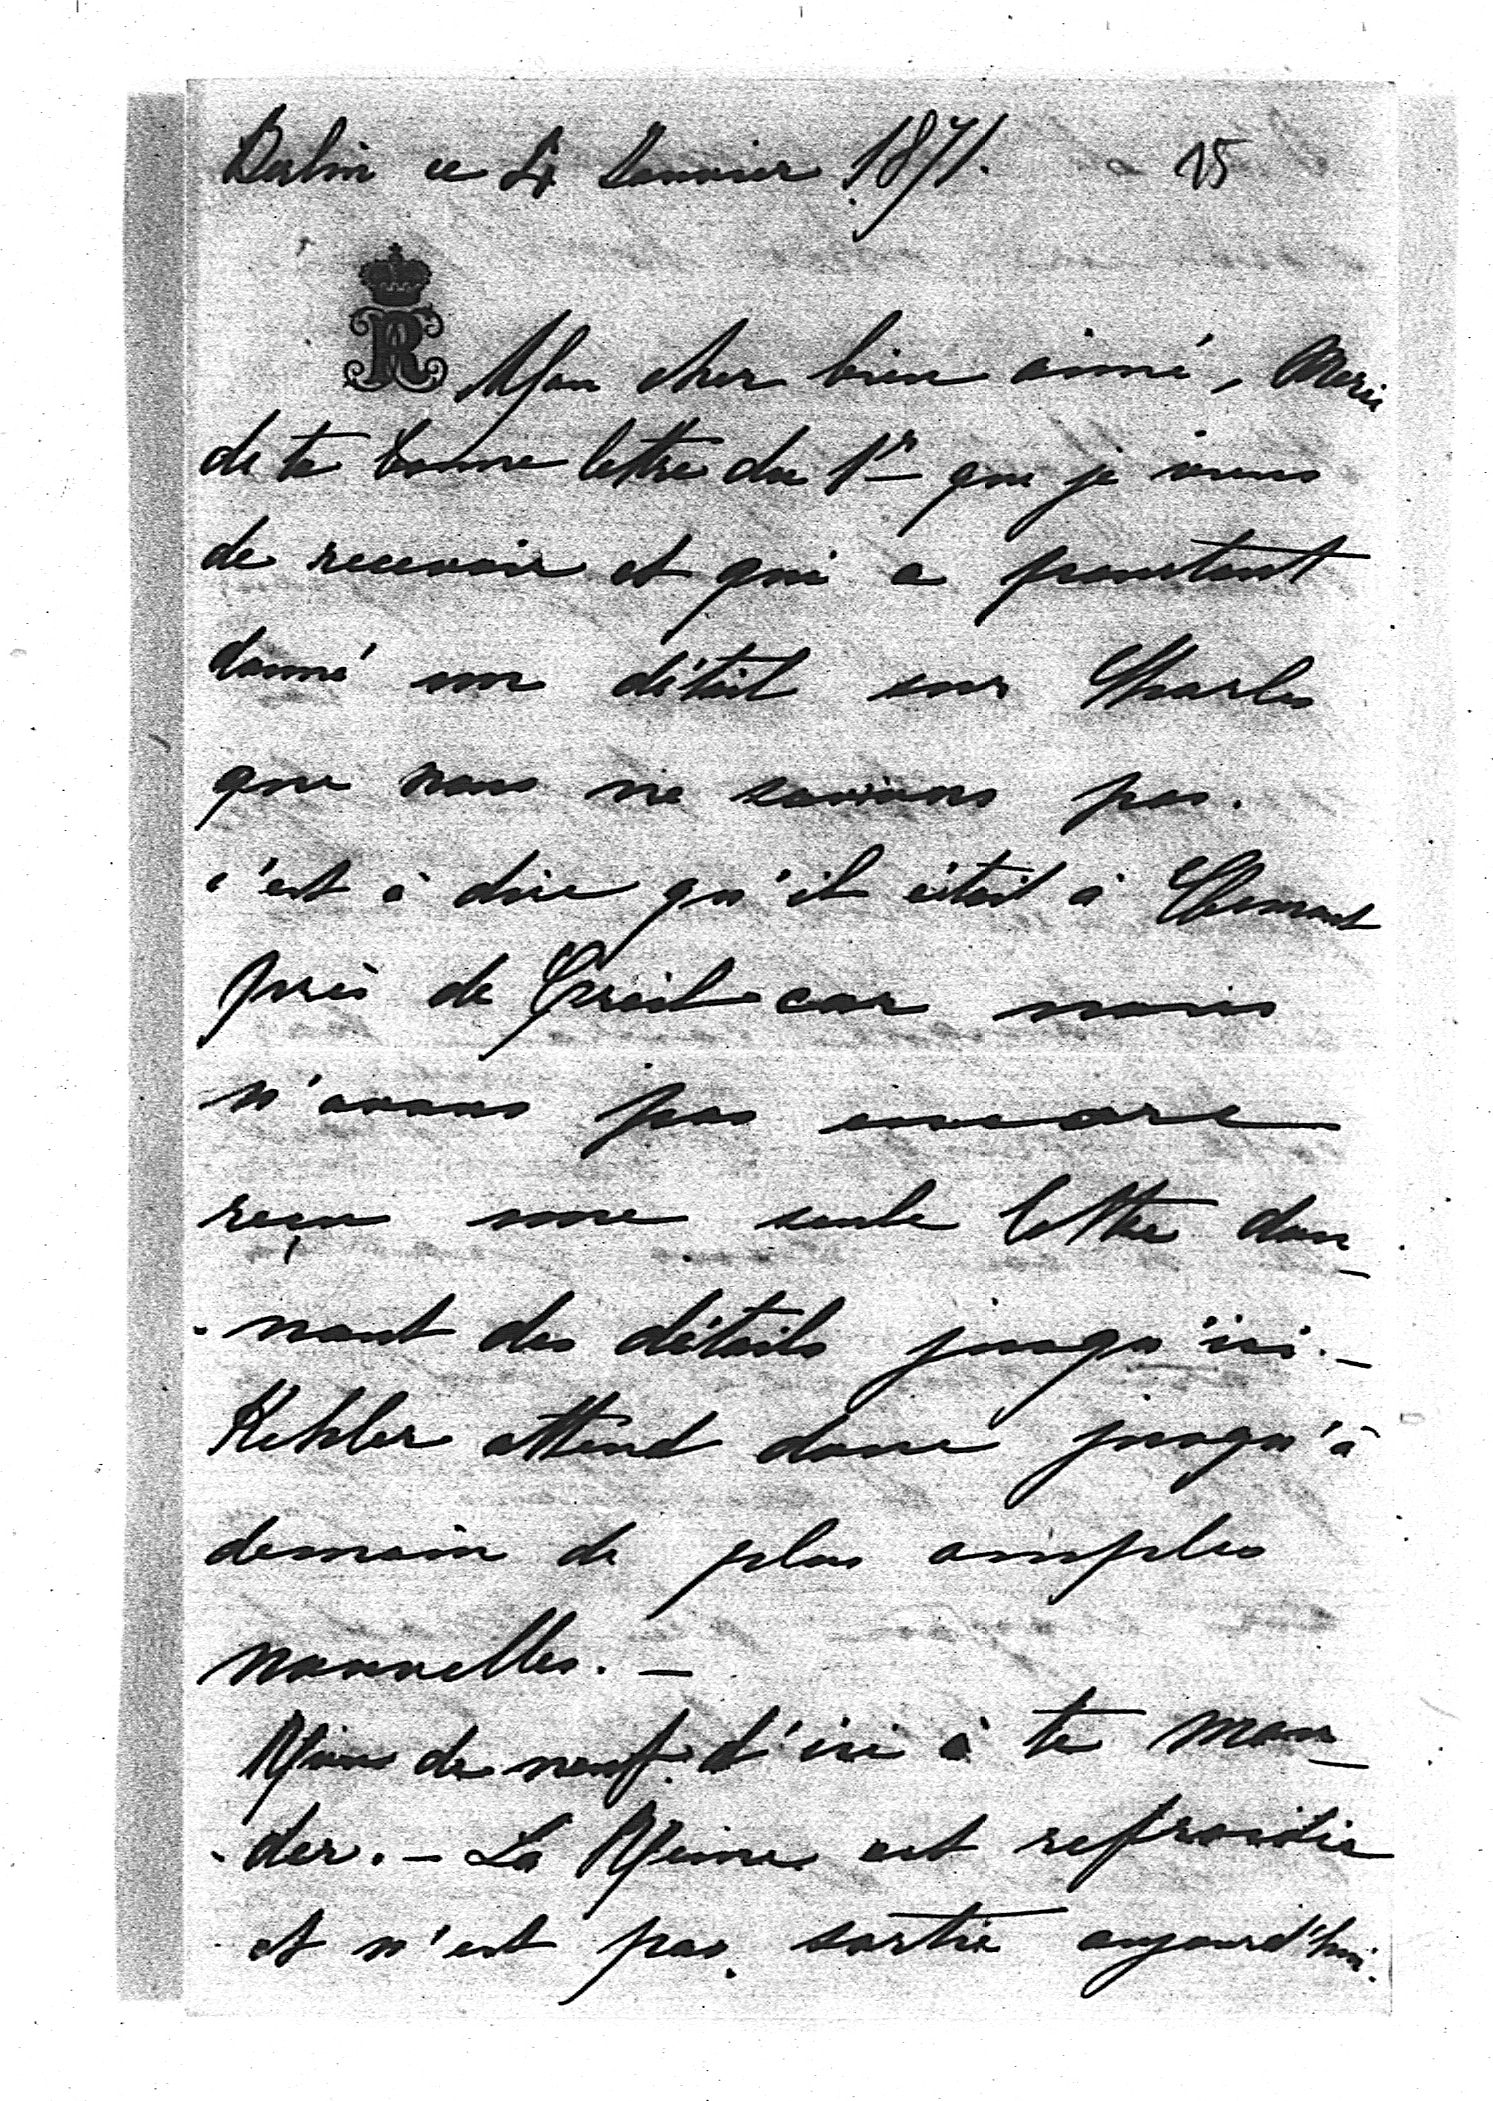 Berlin ce 4 Janvier 1871. 15
R Mon cher bien aimé, Merci
de ta bonne lettre du 1er que je viens
de recevoir et qui a pourtant
donné un détail sur Charles
que nous ne savions pas.
c'est à dire qu'il était à
près de Creil car nous
n'avons pas encore
reçu une seule lettre don_
-nant des détails jusqu'ici._
Kehler attend donc jusqu'à
demain de plus amples
nouvelles. _
Rien de neuf d'ici à te man_
-der. _ La Reine est refroidie
et n'est pas sortie aujourd'hui.